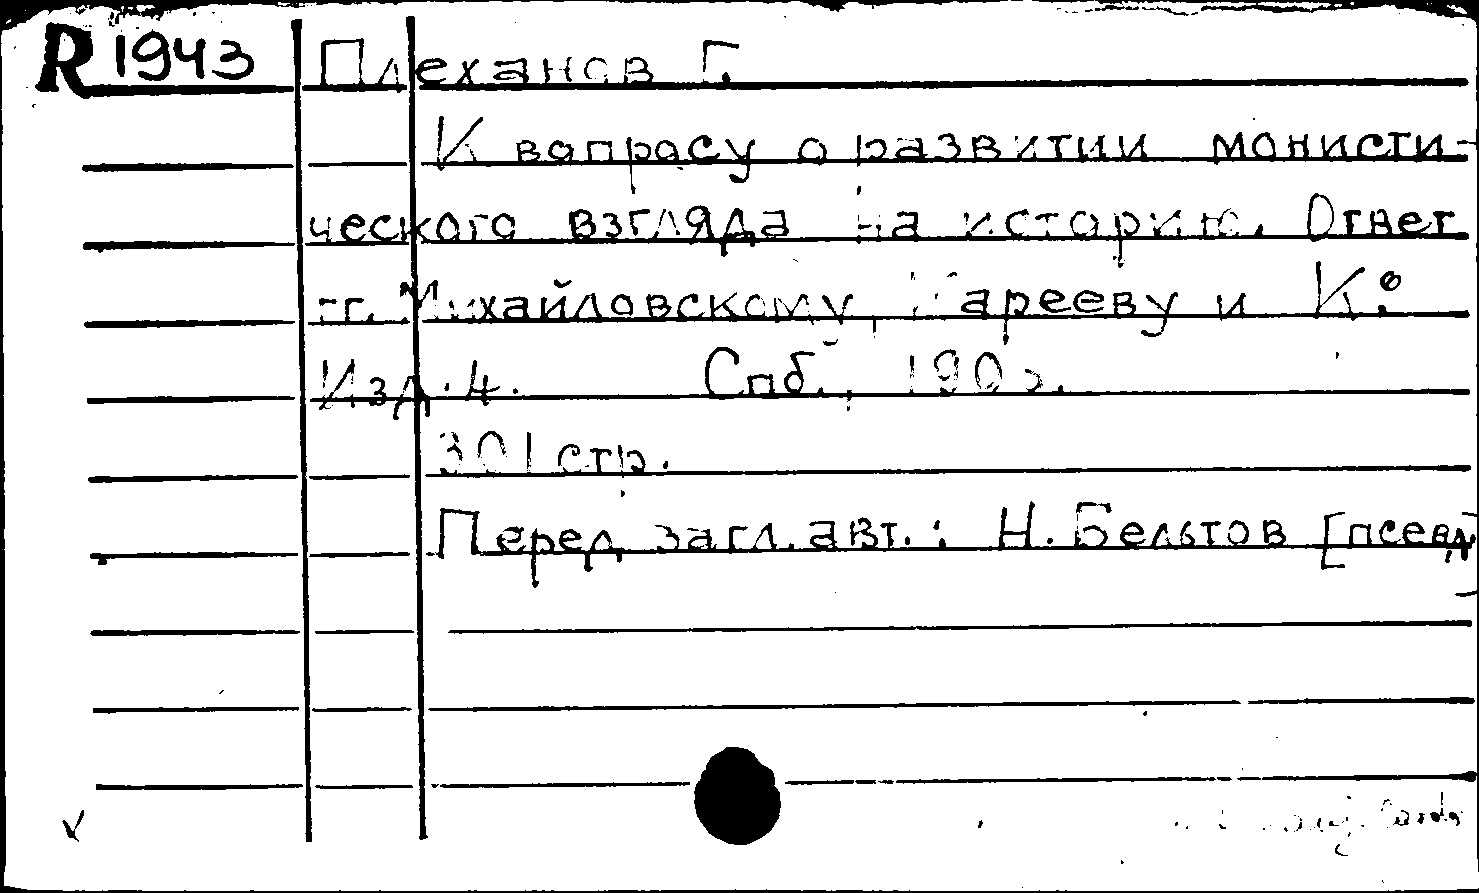 R 1943 Плеханов Г.
К вопросу о развитии монисти-
ческого взгляда на историю. Ответ
гг. Михайловскому, Карееву и К.º
Изд. 4. Спб.,
301 стр.
Перед загл. авт.: Н. Бельтов [псевд